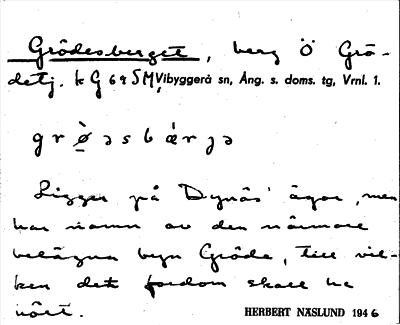 Grödesberget, berg Ö Grö-
detj. k G 6 q SM, Vibyggerå sn, Ång. s. doms. tg, Vrnl. 1.
g r ø̀ ə s b ǽ r ȷ ə
Ligger på Dynäs' ägor, men
har namn av den närmare
belägna byn Gröde, till vil-
ken det fordom skall ha
hört.
HERBERT NÄSLUND 1946